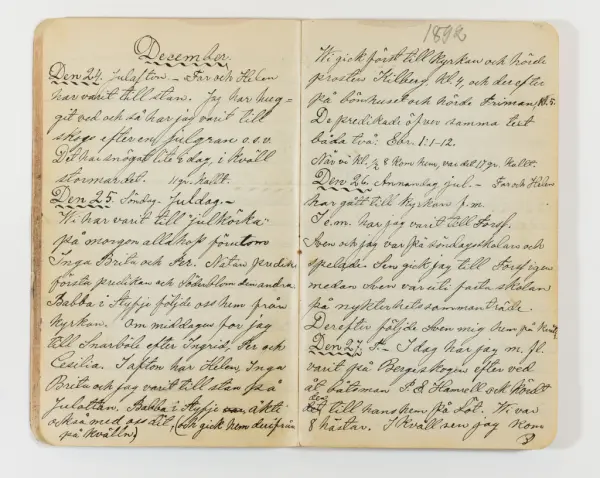 December.
Den 24. Julafton. – Far och Helen
har varit till stan. Jag har hug=
git ved och så har jag varit till
skogs efter en julgran o.s.v.
Det har snögat lite i dag, i kväll
stormar det. 11 gr. kallt.
Den 25. Söndag. Juldag. –
Vi har varit till "julköcka"
på morgon allihop förutom
Inga Brita och Per. Natan predik.
första predikan och Söderblom den andra
Babba i Styfje följde oss hem från
kyrkan. Om middagen for jag
till Snarböl efter Ingrid, Per och
Cesilia. I afton har Helen, Inga
Brita och jag varit till stan på
Julottan. Babba i Styfje åkte
också med oss dit, (och gick hem derifrån
på kvälln)
1892
Vi gick först till kyrkan och hörde
prosten Kilberg, kl. 4, och derefter
på bönhuset och hörde Friman, kl. 5.
De predikade öfver samma text
båda två: Ebr. 1:1-12.
När vi kl. ½ 8 kom hem, var det 17 gr. kallt.
Den 26. Annandag jul. – Far och Helen
har gått till kyrkan f.m.
I e.m. har jag varit till Forss.
Sven och jag var på söndagsskolan och
spelade. Sen gick jag till Forss igen
medan Sven var uti fasta skolan
på nykterhetssammanträde.
Derefter följde Sven mig hem på
Den 27. – I dag har jag m. fl.
varit på Bergsskogen efter ved
åt båtsman P. E. Hamrell och kördt
den till hans hem på Löt. Vi var
8 hästar. I kväll sen jag kom